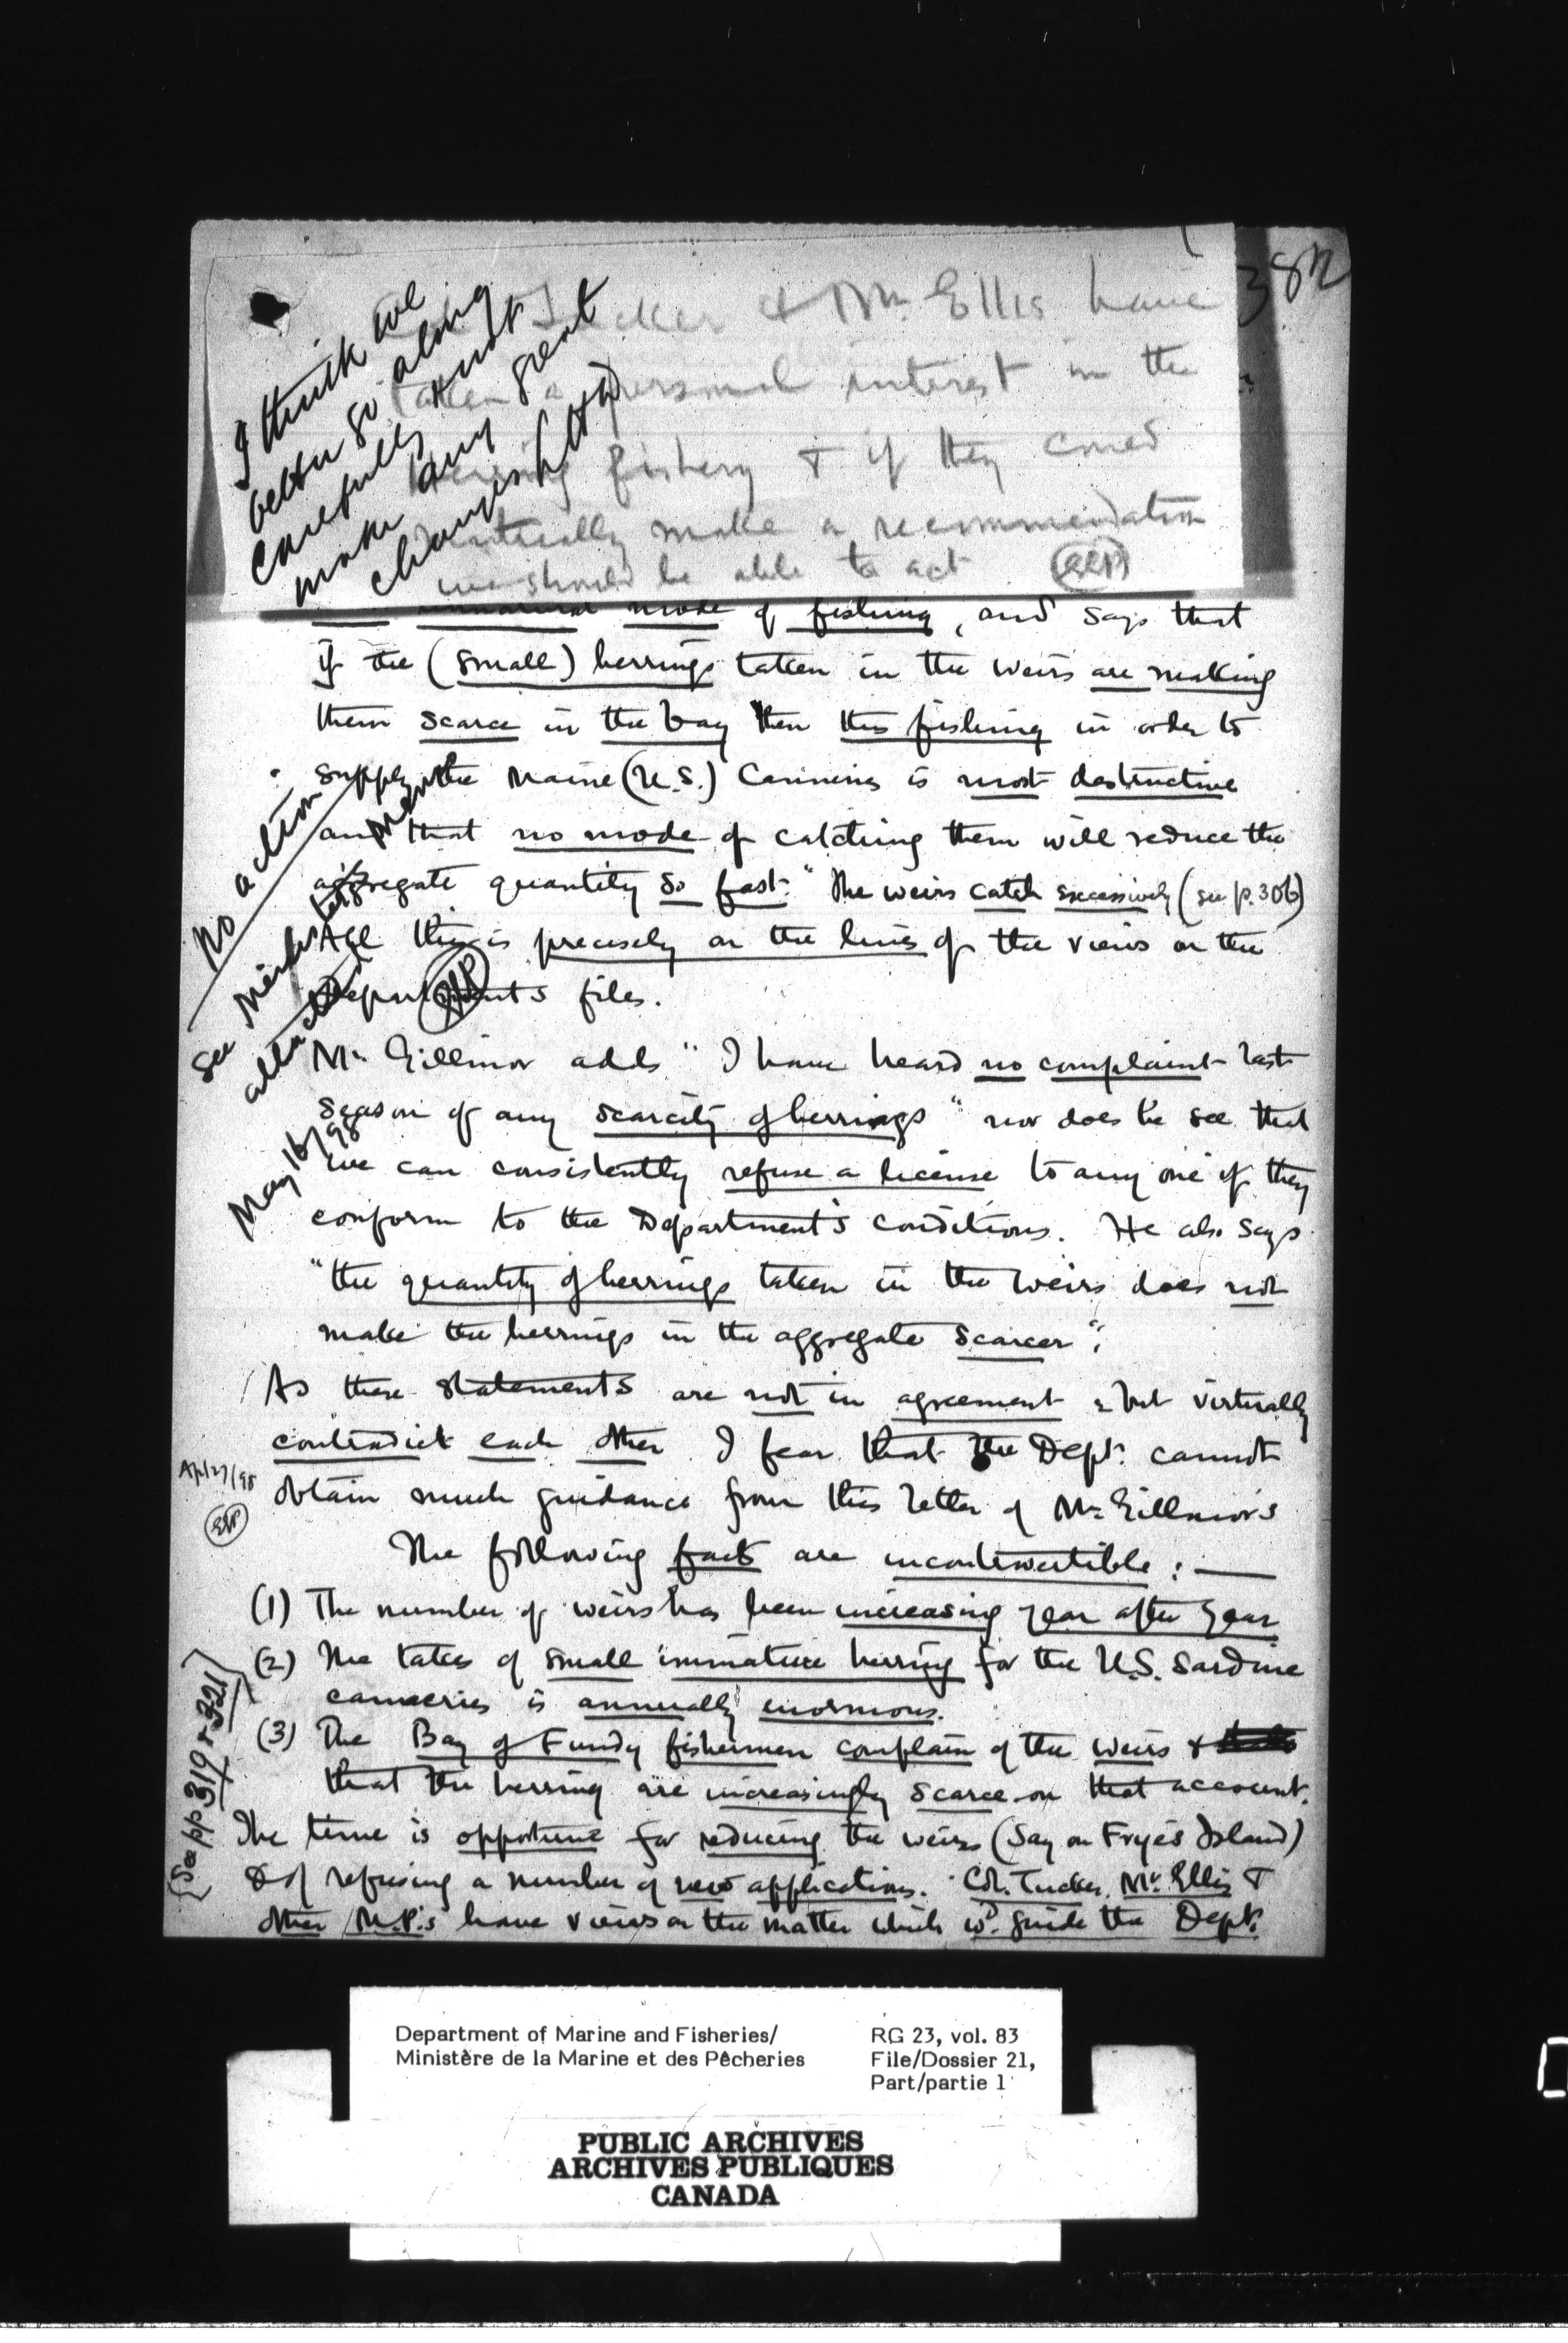 382
Tucker & Mr. Ellis have
taken a personal interest in the
herring fishery & if they could
make a recommendation
we should be able to act EEP
I think we
better go along
carefully & not
make any great
changes LHD
unnatural mode of fishing, and says that
if the (small) herrings taken in the weirs are making
them scarce in the bay then this fishing in order to
supply the Maine (U.S.) Canneries is most destructive
and that no mode of catching them will reduce the
aggregate quantity so fast." The weirs catch excessively (see p. 306)
All this is precisely on the lines of the views on the
Department's files.
No action
See Minister's
attached
EEP
May 16/98
Mr Gillmor adds "I have heard no complaint last
season of any scarcity of herrings" nor does he see that
we can consistently refuse a license to any one if they
conform to the Department's conditions. He also says
"the quantity of herrings taken in the weirs does not
make the herrings in the aggregate scarcer".
As these statements are not in agreement & but virtually
contradict each other I fear that the Dept. cannot
obtain much guidance from this letter of Mr Gillmor's
Apl 27/98
EEP
The following facts are incontrovertible :—
(1) The number of weirs has been increasing year after year
(2) The takes of small immature herring for the U.S. Sardine
canneries is annually enormous.
(3) The Bay of Fundy fishermen complain of the weirs &
that the herring are increasingly scarce on that account.
The time is opportune for reducing the weirs (Say on Frye's Island)
& of refusing a number of new applications. Col. Tucker, Mr. Ellis &
other M.P.'s have views on the matter which wd. guide the Dept.
{See pp 319 & 321}
Department of Marine and Fisheries/
Ministère de la Marine et des Pêcheries
RG 23, vol. 83
File/Dossier 21,
Part/partie 1
PUBLIC ARCHIVES
ARCHIVES PUBLIQUES
CANADA